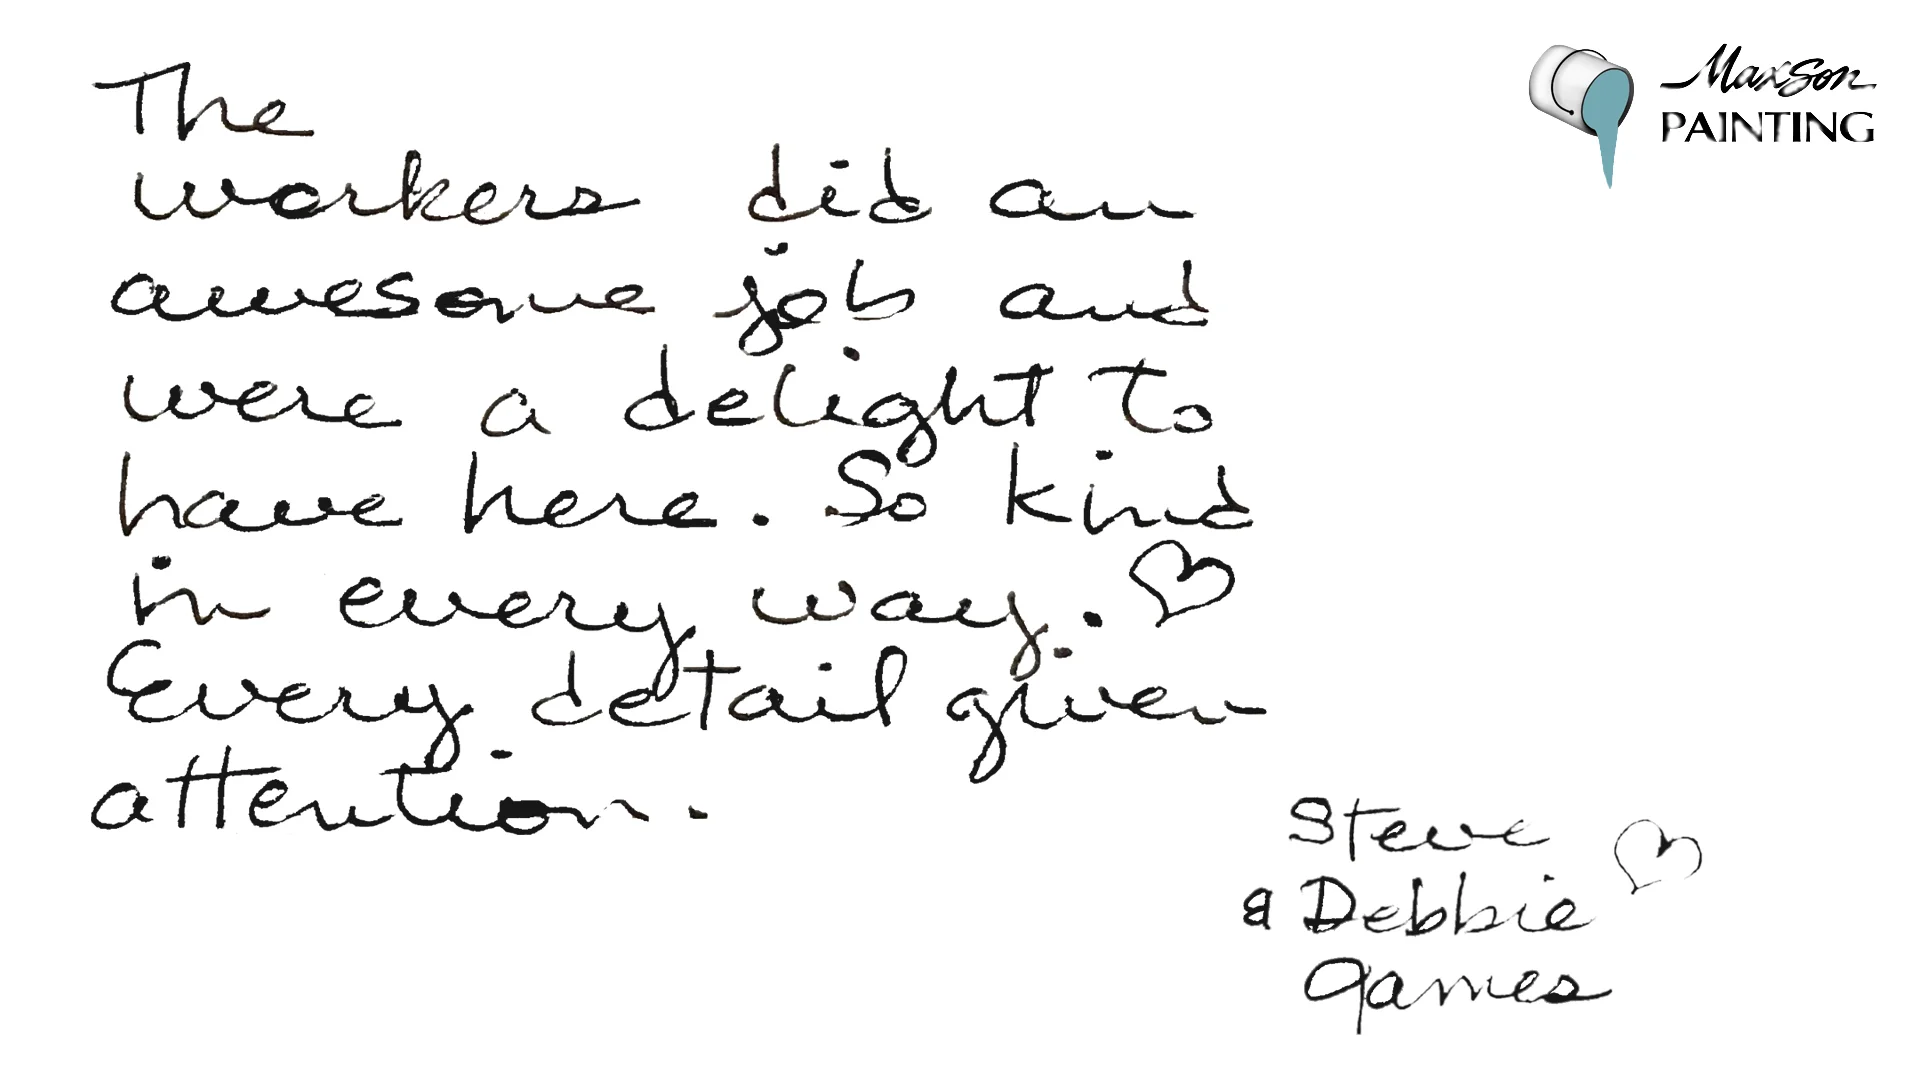 MaxSon
PAINTING
The
workers did an
awesome job and
were a delight to
have here. So kind
in every way. ♡
Every detail given
attention.
Steve ♡
& Debbie
James